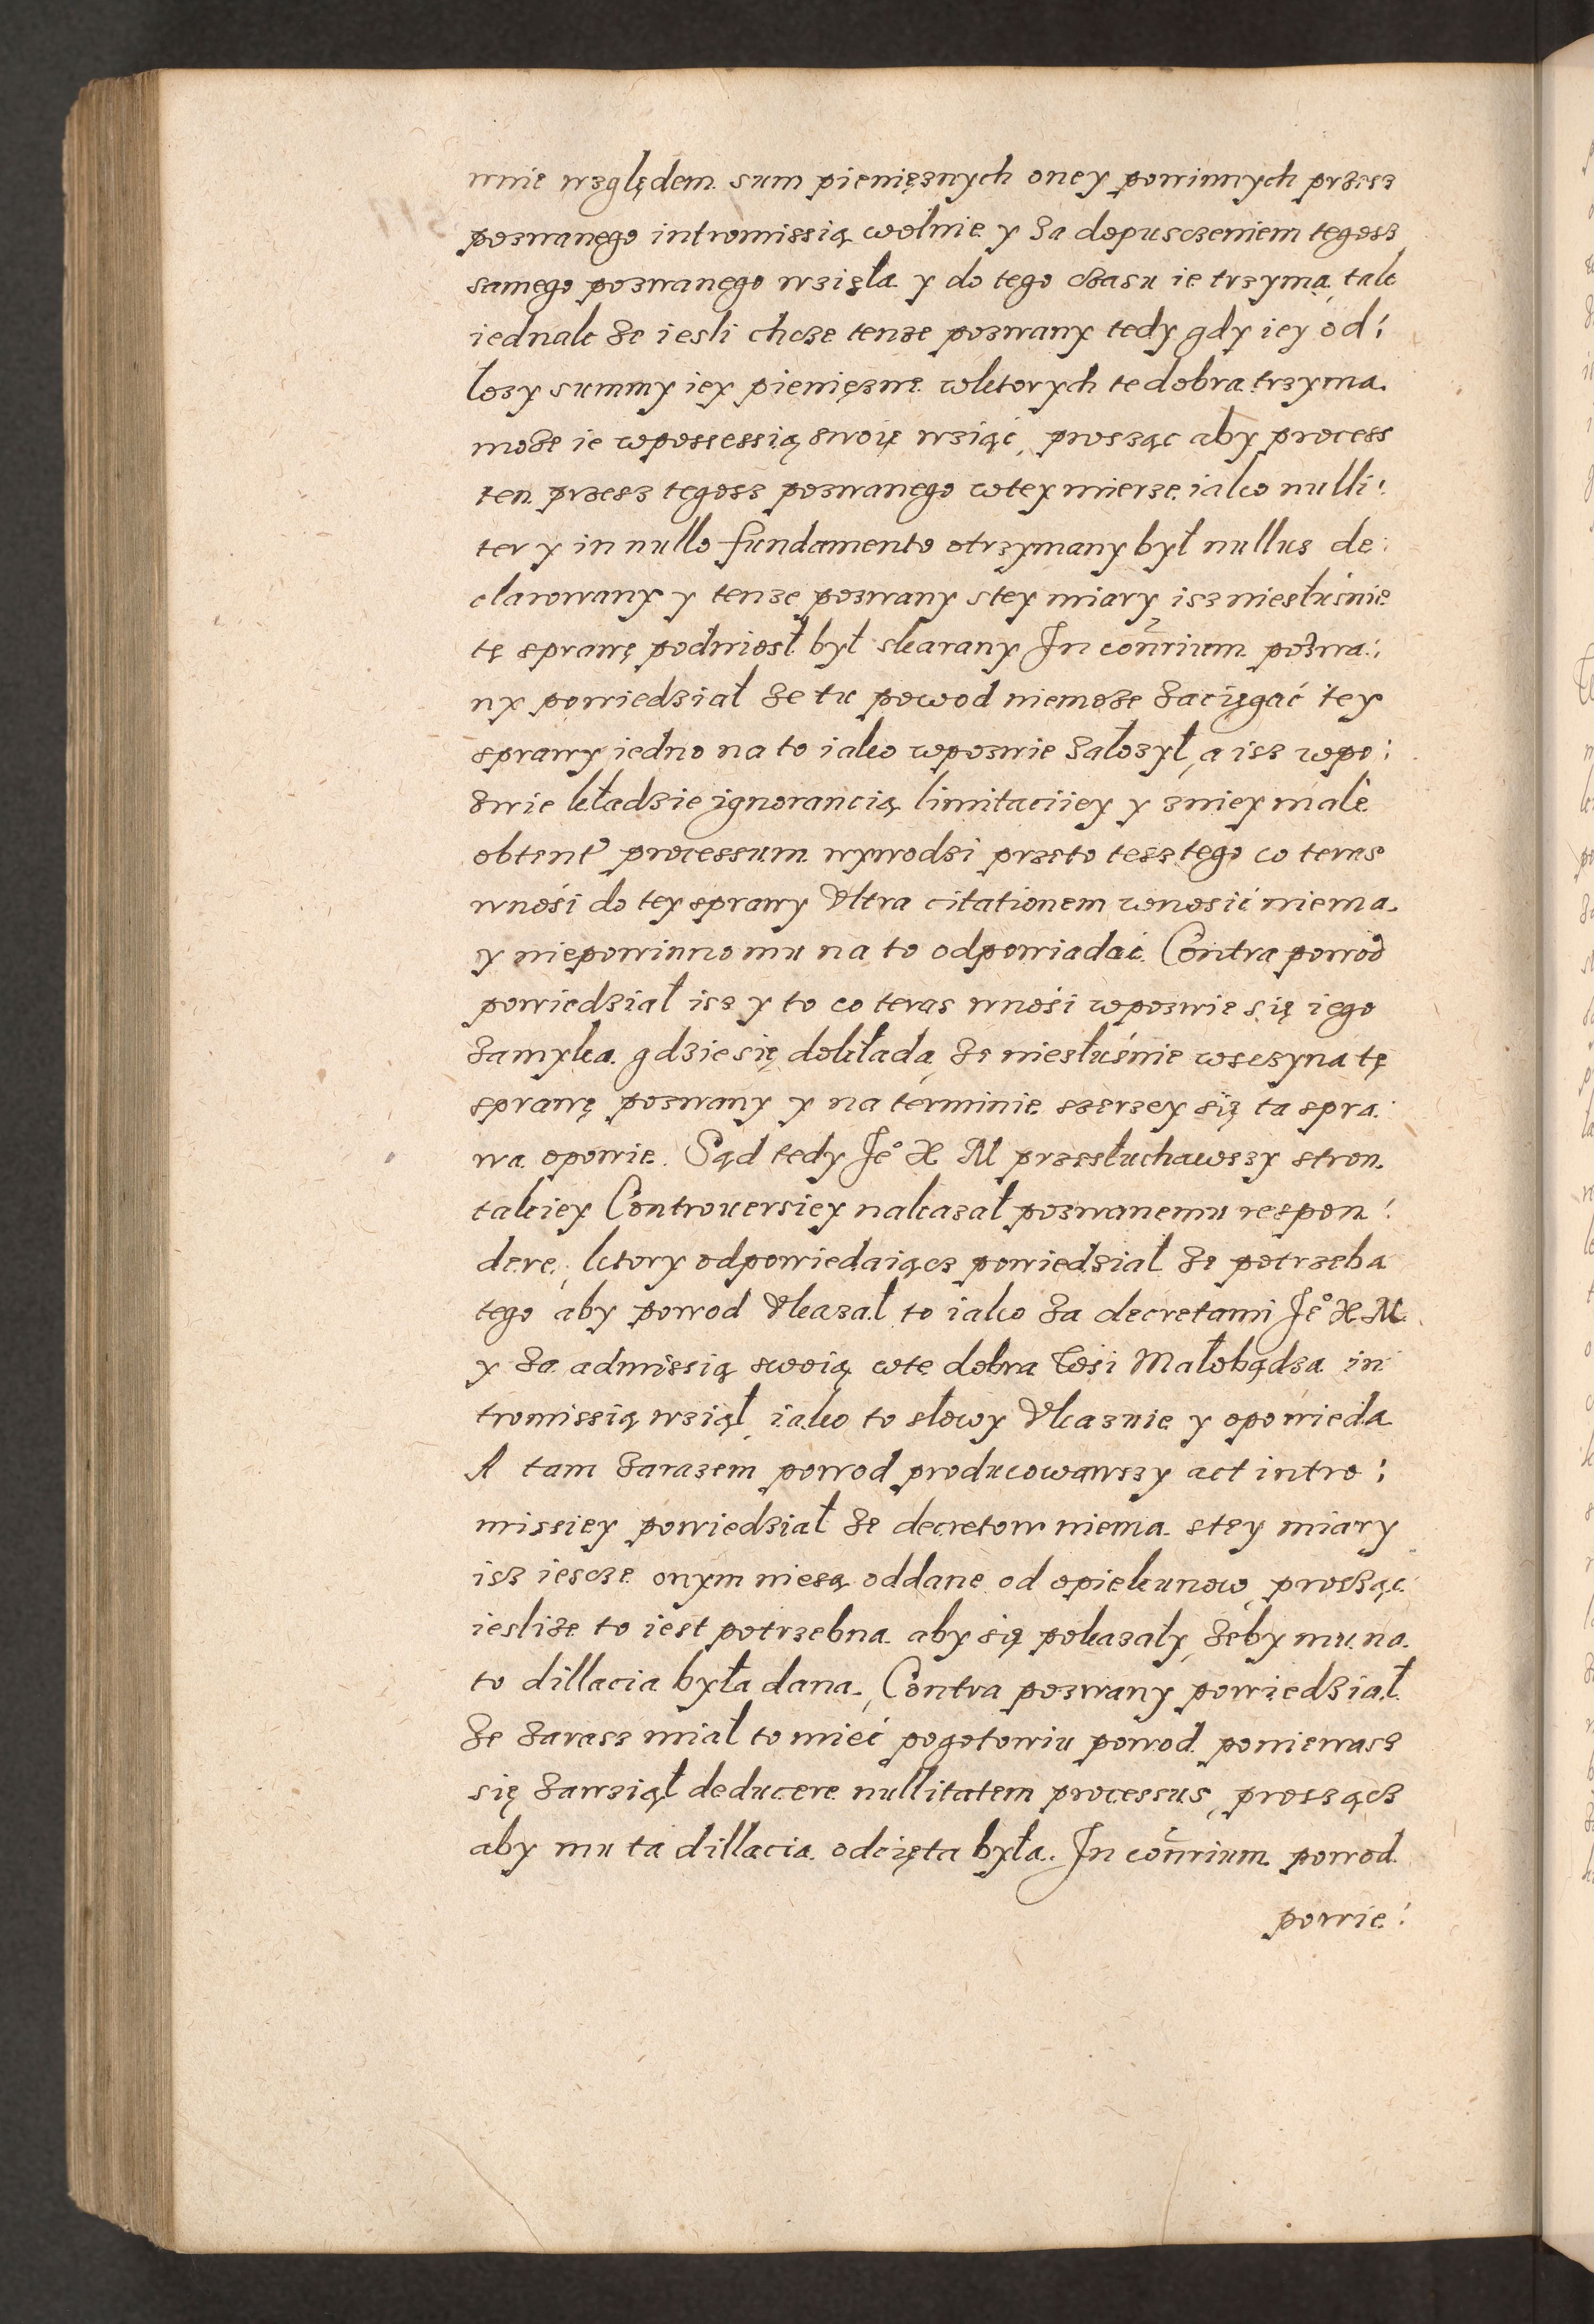 wnie względem sum pienięznych oney powinnych przesz
pozwanęgo intromissią wolnie y za dopusczeniem tęgosz
samęgo pozwanęgo wzięła y do tego czasu ie trzyma, tak
iednak że iesli chcze tenże pozwany tedy gdy iey od:
lozy summy iey pienięzne wktorych te dobra trzyma
może ie wpossessią swoię wziąć, prosząc aby process
ten przesz tęgosz pozwanego wtey mierze iako nulli:
ter y in nullo fundamento otrzymany był nullus de:
clarowany y tenże pozwany stey miary isz niesłusnie
tę sprawę podniosł był skarany In conrium pozwa:
ny powiedział że tu powod niemoże zaciągać tey
sprawy iedno na to iako wpozwie założył, a isz wpo:
zwie kładzie ignorancią limitaciiey y zniey male
obtent processum wywodzi przeto tesz tęgo co teras
wnosi do tey sprawy Vltra citationem wnosić niema
y niepowinno mu na to odpowiadać Contra powod
powiedział isz y to co teras wnosi wpozwie się iego
zamyka gdzie się dokłada, że niesłusnie wsczyna tę
sprawę pozwany y na terminie szerzey się ta spra:
wa opowie. Sąd tedy Je° K M przesłuchawszy stron
takiey Controuersiey nakazał pozwanemu respon:
dere, ktory odpowiedaiącz powiedział że potrzeba
tego aby powod Vkazał to iako za decretami Je° K M
y za admissią swoią wte dobra Wsi Małobądza in
tromissią wziął, iako to słowy Vkaznie y opowieda
A tam zarazem powod producowawszy act intro:
missiey powiedział że decretow niema stey miary
isz iescze onym niesą oddane od opiekunow, prosząc
iesliże to iest potrzebna aby się pokazały, żeby mu na
to dillacia była dana, Contra pozwany powiedział
że zarasz miał to mieć pogotowiu powod poniewasz
się zawziął deducere nullitatem processus, proszącz
aby mu ta dillacia odcięta była. In conrium powod
powie: